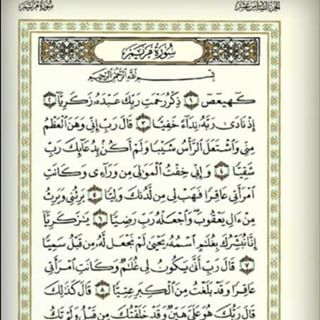 الجزء السادس عشر
سورة مريم
سُورَةُ مَرْيَمَ
بِسْمِ اللَّهِ الرَّحْمَٰنِ الرَّحِيمِ
كٓهيعٓصٓ ١ ذِكْرُ رَحْمَتِ رَبِّكَ عَبْدَهُۥ زَكَرِيَّآ ٢
إِذْ نَادَىٰ رَبَّهُۥ نِدَآءً خَفِيًّا ٣ قَالَ رَبِّ إِنِّى وَهَنَ ٱلْعَظْمُ
مِنِّى وَٱشْتَعَلَ ٱلرَّأْسُ شَيْبًا وَلَمْ أَكُنۢ بِدُعَآئِكَ رَبِّ
شَقِيًّا ٤ وَإِنِّى خِفْتُ ٱلْمَوَٰلِىَ مِن وَرَآءِى وَكَانَتِ
ٱمْرَأَتِى عَاقِرًا فَهَبْ لِى مِن لَّدُنكَ وَلِيًّا ٥ يَرِثُنِى وَيَرِثُ
مِنْ ءَالِ يَعْقُوبَ وَٱجْعَلْهُ رَبِّ رَضِيًّا ٦ يَٰزَكَرِيَّآ
إِنَّا نُبَشِّرُكَ بِغُلَٰمٍ ٱسْمُهُۥ يَحْيَىٰ لَمْ نَجْعَل لَّهُۥ مِن قَبْلُ سَمِيًّا
٧ قَالَ رَبِّ أَنَّىٰ يَكُونُ لِى غُلَٰمٌ وَكَانَتِ ٱمْرَأَتِى
عَاقِرًا وَقَدْ بَلَغْتُ مِنَ ٱلْكِبَرِ عِتِيًّا ٨ قَالَ كَذَٰلِكَ
قَالَ رَبُّكَ هُوَ عَلَىَّ هَيِّنٌ وَقَدْ خَلَقْتُكَ مِن قَبْلُ وَلَمْ تَكُ